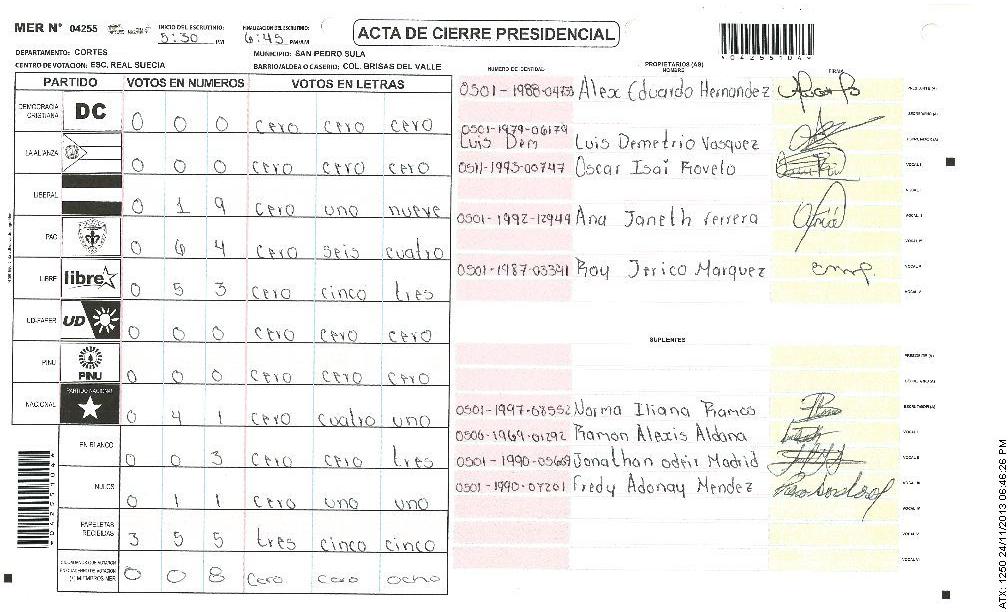 MER N° 04255 INICIO DEL ESCRUTINIO: FINALIZACION DEL ESCRUTINIO: ACTA DE CIERRE PRESIDENCIAL
5:30 PM 6:45 PM/AM
DEPARTAMENTO: CORTES MUNICIPIO: SAN PEDRO SULA
CENTRO DE VOTACION: ESC. REAL SUECIA BARRIO/ALDEA O CASERIO: COL. BRISAS DEL VALLE
PARTIDO VOTOS EN NUMEROS VOTOS EN LETRAS
DEMOCRACIA CRISTIANA DC 0 0 0 cero cero cero
LA ALIANZA 0 0 0 cero cero cero
LIBERAL 0 1 9 cero uno nueve
PAC 0 6 4 cero seis cuatro
LIBRE libre 0 5 3 cero cinco tres
UD-FAPER UD 0 0 0 cero cero cero
PINU PINU 0 0 0 cero cero cero
NACIONAL PARTIDO NACIONAL 0 4 1 cero cuatro uno
EN BLANCO 0 0 3 cero cero tres
NULOS 0 1 1 cero uno uno
PAPELETAS RECIBIDAS 3 5 5 tres cinco cinco
0 0 8 cero cero ocho
NUMERO DE IDENTIDAD PROPIETARIOS (AS) NOMBRE FIRMA
Alex Eduardo Hernandez
0501-1979-06179
Luis Dem Luis Demetrio Vasquez
0511-1993-00747 Oscar Isai Rovelo
0501-1992-12949 Ana Janeth Ferrera
0501-1987-03391 Roy Jerico Marquez
SUPLENTES
0501-1997-08552 Norma Iliana Ramos
0506-1969-01292 Ramon Alexis Aldana
0501-1990-05669 Jonathan odir Madrid
0501-1990-07201 Fredy Adonay Mendez
ATX: 1250 24/11/2013 06:46:26 PM